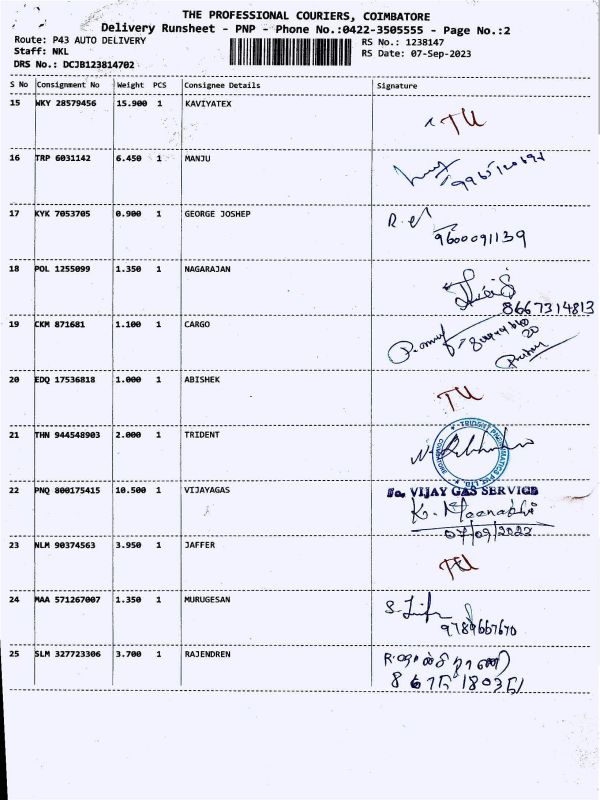 THE PROFESSIONAL COURIERS, COIMBATORE
Delivery Runsheet - PNP - Phone No.:0422-3505555 - Page No.:2
Route: P43 AUTO DELIVERY
RS No.: 1238147
Staff: NKL
RS Date: 07-Sep-2023
DRS No.: DCJB123814702
S No Consignment No Weight PCS Consignee Details Signature
15 WKY 28579456 15.900 1 KAVIYATEX
TU
16 TRP 6031142 6.450 1 MANJU
17 KYK 7053705 0.900 1 GEORGE JOSHEP
9600091139
18 POL 1255099 1.350 1 NAGARAJAN
8667314813
19 CKM 871681 1.100 1 CARGO
20 EDQ 17536818 1.000 1 ABISHEK
TU
21 THN 944548903 2.000 1 TRIDENT
22 PNQ 800175415 10.500 1 VIJAYAGAS
VIJAY GAS SERVICE
K. Meenakshi
23 NLM 90374563 3.950 1 JAFFER
TU
24 MAA 571267007 1.350 1 MURUGESAN
9789667670
25 SLM 327723306 3.700 1 RAJENDREN